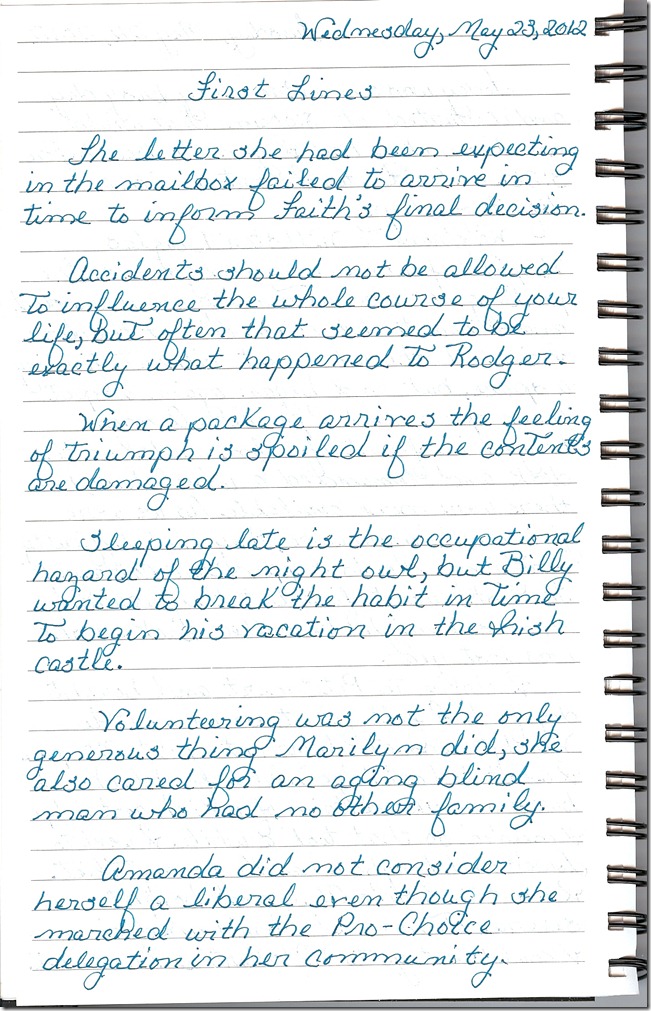 Wednesday, May 23, 2012
First Lines
The letter she had been expecting
in the mailbox failed to arrive in
time to inform Faith's final decision.
Accidents should not be allowed
to influence the whole course of your
life, but often that seemed to be
exactly what happened to Rodger.
When a package arrives the feeling
of triumph is spoiled if the contents
are damaged.
Sleeping late is the occupational
hazard of the night owl, but Billy
wanted to break the habit in time
to begin his vacation in the Irish
castle.
Volunteering was not the only
generous thing Marilyn did, she
also cared for an aging blind
man who had no other family.
Amanda did not consider
herself a liberal even though she
marched with the Pro-Choice
delegation in her community.